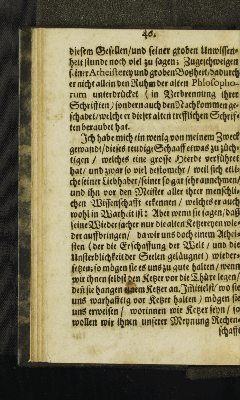 46.
diesem Gesellen/ und seiner groben Unwissen-
heit stunde noch viel zu sagen; Zugeschweigen
seiner Atheisterey und groben Boßheit/ dadurch
er nicht allein den Ruhm der alten Philosopho-
rum unterdrücket (in Verbrennung ihrer
Schrifften/ sondern auch den Nachkommen ge-
schadet/ welche er dieser alten trefflichen Schrif-
ten beraubet hat.
Ich habe mich ein wenig von meinem Zweck
gewand/ dieses reudig-Schaaff etwas zu züch-
tigen/ welches eine grosse Heerde verführet
hat/ und zwar so viel destomehr/ weil sich etli-
che seiner Liebhaber/ seiner so gar sehr annehmen/
und ihn vor den Meister aller ihrer menschli-
chen Wissenschafft erkennen/ welches er auch
wohl in Warheit ist: Aber wenn sie sagen/ daß
seine Wiedersacher nur die alten Ketzereyen wie-
der auffbringen/ da wir uns doch einem Athei-
sten (der die Erschaffung der Welt/ und die
Unsterblichkeit der Seelen geläugnet) wieder-
setzen; so mögen sie es uns zu gute halten/ wenn
wir ihnen selbst den Ketzer vor die Thüre legen/
den sie hangen einem Ketzer an. Immittelst/ wo sie
uns warhafftig vor Ketzer halten/ mögen sie
uns erweisen/ worinnen wir Ketzer seyn/ so
wollen wir ihnen unserer Meynung Rechen-
schafft